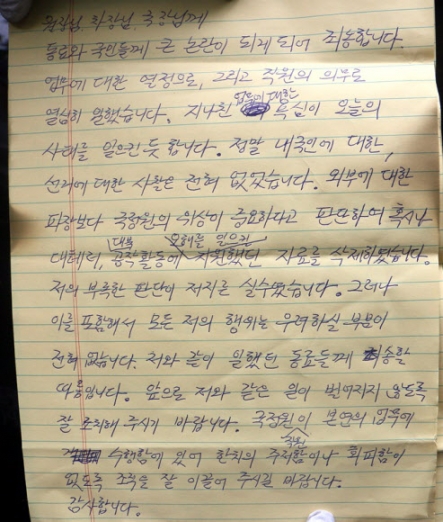 원장님, 차장님, 국장님께
동료와 국민들께 큰 논란이 되게 되어 죄송합니다.
업무에 대한 열정으로, 그리고 직원의 의무로
열심히 일했습니다. 지나친 업무에 대한 욕심이 오늘의
사태를 일으킨 듯 합니다. 정말 내국인에 대한,
선거에 대한 사찰은 전혀 없었습니다. 외부에 대한
파장보다 국정원의 위상이 중요하다고 판단하여 혹시나
대테러, 대북 공작활동에 오해를 일으킨 지원했던 자료를 삭제하였습니다.
저의 부족한 판단이 저지른 실수였습니다. 그러나
이를 포함해서 모든 저의 행위는 우려하실 부분이
전혀 없습니다. 저와 같이 일했던 동료들께 죄송할
따름입니다. 앞으로 저와 같은 일이 벌어지지 않도록
잘 조치해 주시기 바랍니다. 국정원이 본연의 업무에
직원 수행함에 있어 한치의 주저함이나 회피함이
없도록 조직을 잘 이끌어 주시길 바랍니다.
감사합니다.